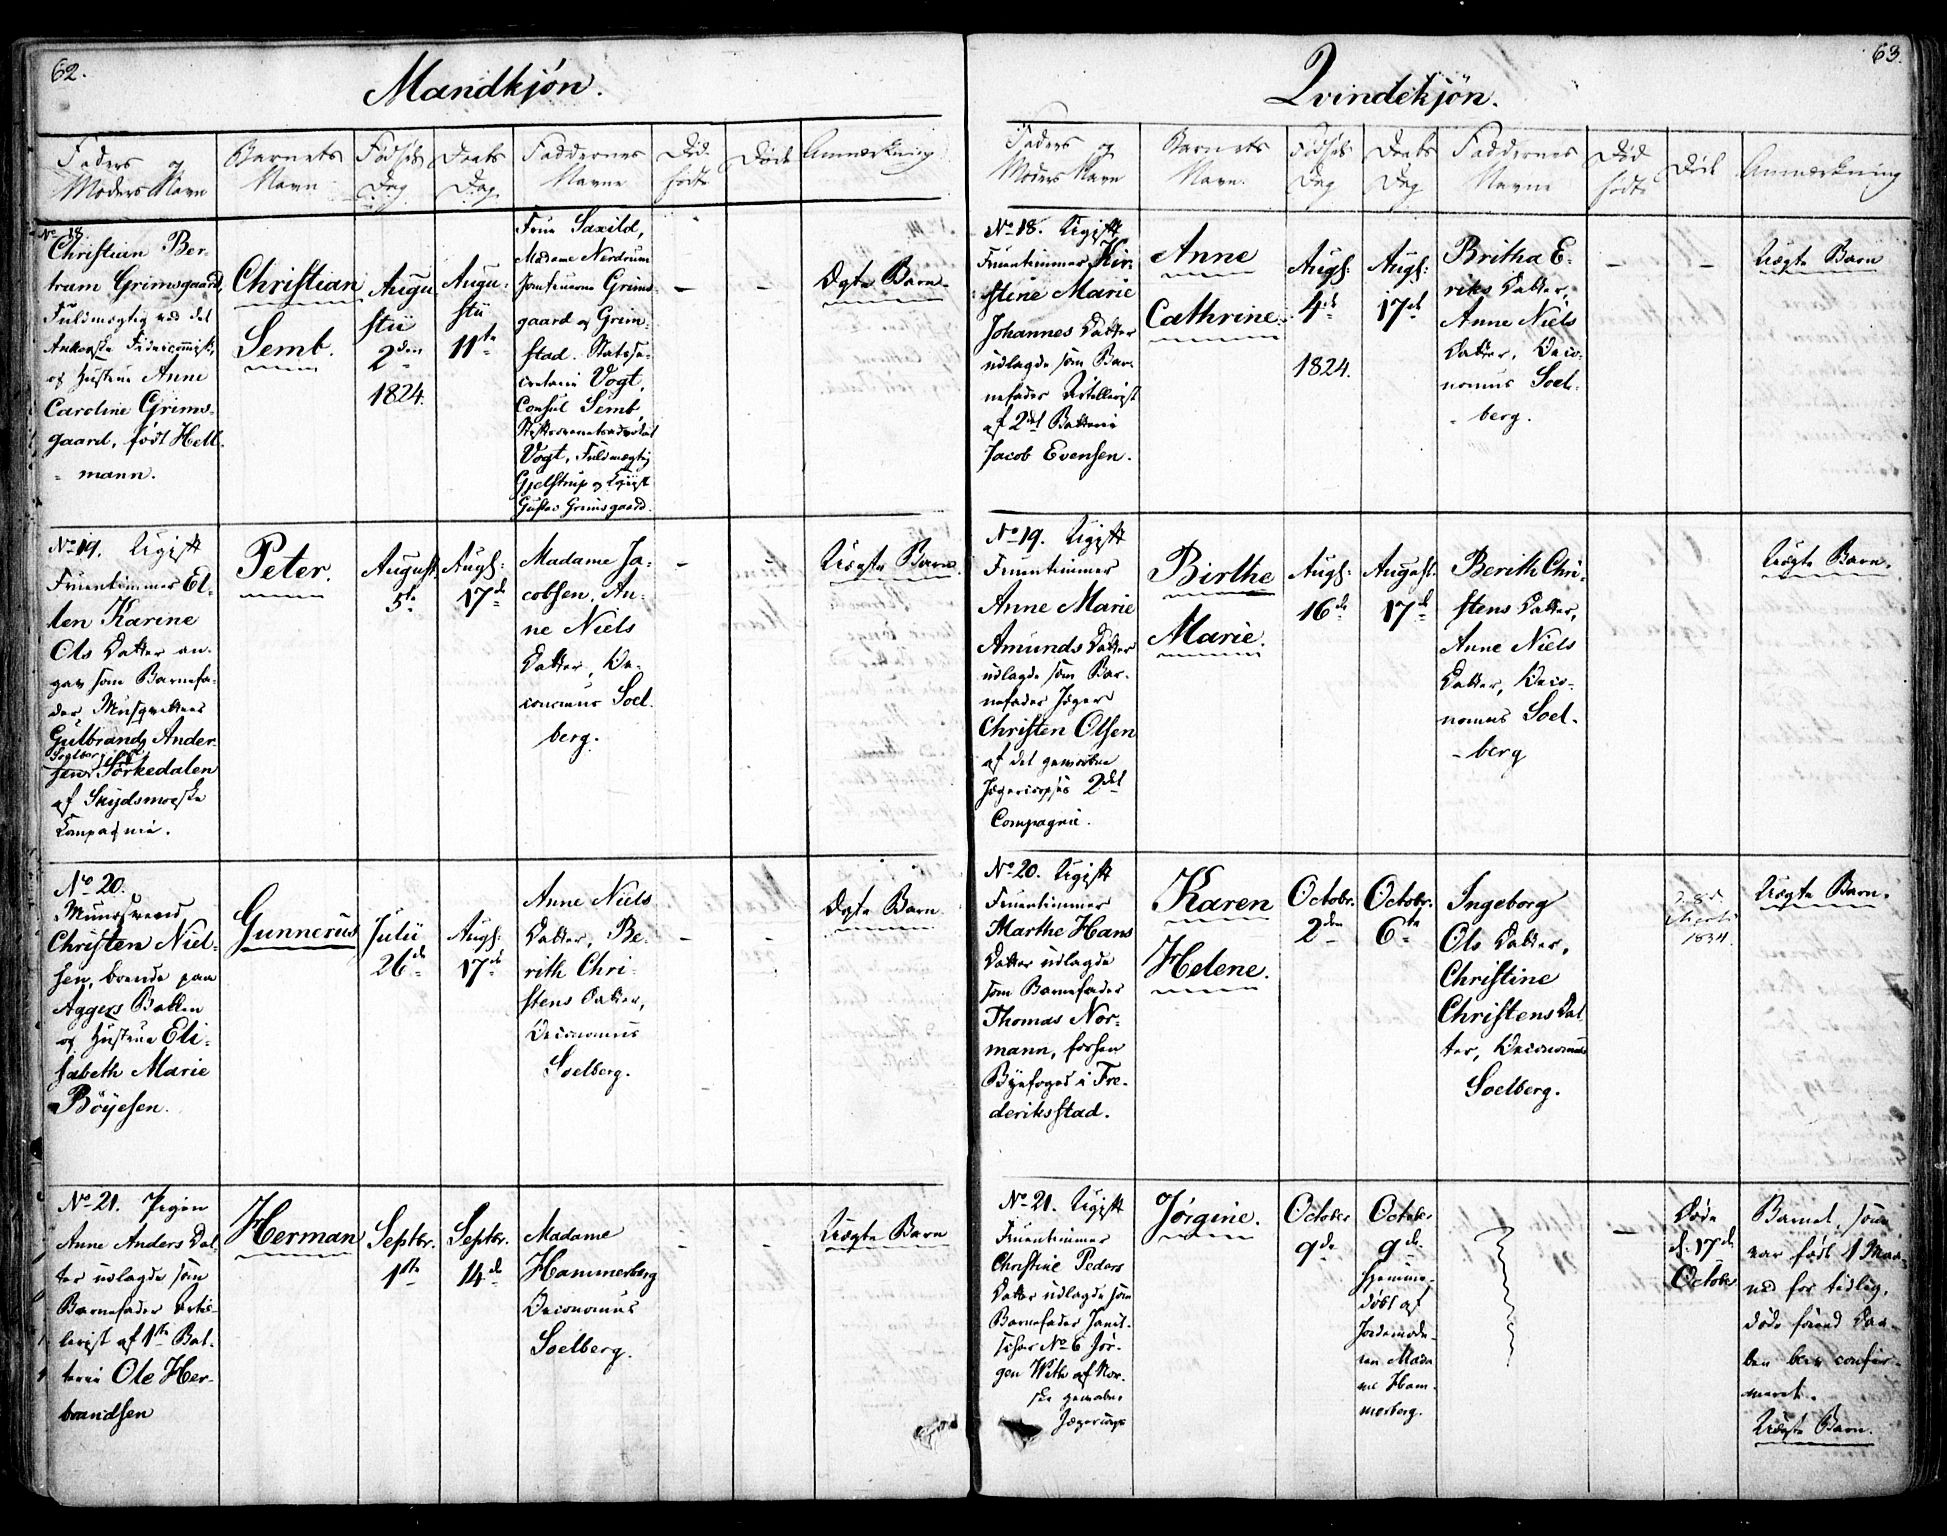 62.
Mandkjön.
Faders og
Moders Navn
Barnets
Navn
Fødsels
Dag
Daabs
Dag
Faddernes
Navne
Død
fødte
Døde
Anmærkning
No 18.
Christian Ber-
tram Grimsgaard,
Fuldmægtig ved det
Ankerske Fideicommis,
og Hustrue Anne
Caroline Grims-
gaard, född Hell-
mann.
Christian
Semb.
Augu
stii
2den
1824.
Augu-
stii
11te
Frue Saxild,
Madame Nordrum
Jomfruerne Grims-
gaard og Grim-
stad. Statsse-
cretair Vogt,
Consul Semb,
Vogt, Fuldmægtig
Gjelstrup og
Gustav Grimsgaard.
-
-
Ægte Barn
No 19. Ugift
Fruentimmer El-
len Karine
Ols Datter an-
gav som Barnefa-
der Musqvetteer
Gulbrand Ander-
sen Sörkedalen
af Skydsmoeske
Compagnie.
Peter.
August
5te
Augs:
17de
Madame Ja-
cobsen, An-
ne Niels
Datter, Oe-
conomus Soel-
berg.
-
Uægte Barn.
No 20.
Christen Niel-
sen, boende paa
Aggers Bakken
og Hustrue Eli-
sabeth Marie
Böyesen.
Gunnerus
Julii
26de
Augs.
17de
Anne Niels
Datter, Be-
rith Chri-
stens Datter,
Oeconomus
Soelberg.
-
-
Ægte Barn
No 21. Pigen
Anne Anders Dat
ter udlagde som
Barnefader Artil-
lerist af 1ste Bat-
terie Ole Her-
brandsen
Herman
Septbr.
1ste
Septbr.
14de
Madame
Hammerberg
Oeconomus
Soelberg.
-
-
Uægte Barn
63.
Qvindekjön.
Faders og
Moders Navn
Barnets
Navn.
Fødsels
Dag
Daabs
Dag
Faddernes
Navne
Død
fødte
Døde
Anmærkning
No 18. Ugift
Fruentimmer Kir-
stene Marie
Johannes Datter
udlagde som Bar-
nefader Artillerist
af 2det Batterie
Jacob Evensen.
Anne
Cathrine.
Augs:
4de
1824.
Augs:
17de
Britha E-
riks Datter,
Anne Niels
Datter, Oeco-
nomus Soel-
berg.
-
-
Uægte Barn
No 19. Ugift
Fruentimmer
Anne Marie
Amunds Datter
udlagde som Bar-
nefader Jæger
Christen Olsen
af det gevorbne
Jægercorpses 2det
Compagnie.
Birthe
Marie.
Augs:
16de
August.
17de
Berith Chri-
stens Datter,
Anne Niels
Datter, Oeco-
nomus Soel-
berg
Uægte Barn.
No 20. Ugift
Fruentimmer
Marthe Hans
Datter udlagde
som Barnefader
Thomas Nor-
mann, forhen
Byefoged i Fre-
deriksstad.
Karen
Helene.
Octobr.
2den
Octobr.
6te
Ingeborg
Ols Datter,
Christine
Christens Dat
ter, Oeconomus
Soelberg.
1834.
Uægte Barn.
No 21. Ugift
Fruentimmer
Christine Peders
Datter udlagde som
Barnefader Janit-
schar No 6 Jör-
gen With af Nor-
ske gevorbne
Jægercorps
Jörgine.
October
9de
October
9de
hjemme-
döbt af
Jordemode-
ren Mada
me Ham-
merberg.
-
Døde
d. 17de
October
Barnet, som
var født 1 Maa-
ned for tidlig,
döde förend Daa-
ben blev confir-
meret.
Uægte Barn.